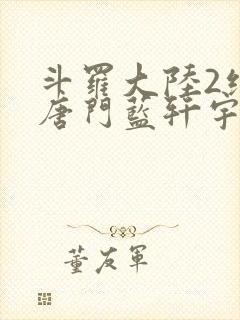 斗羅大陸2
唐門藍軒宇
董友軍